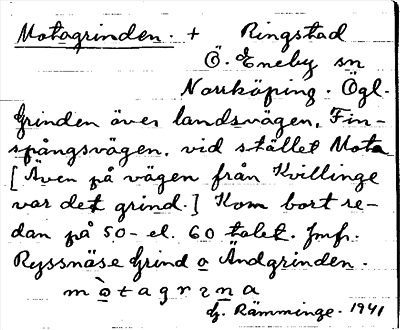 Motagrinden. + Ringstad
Ö. Eneby sn
Norrköping. Ögl.
Grinden över landsvägen, Fin-
spångsvägen, vid stället Mota
[Även på vägen från Kvillinge
var det grind.] Kom bort re-
dan på 50- el. 60 talet. Jmfr.
Ryssnäse Grind o Ändgrinden.
mòtagrɪna
G. Rämminge. 1941